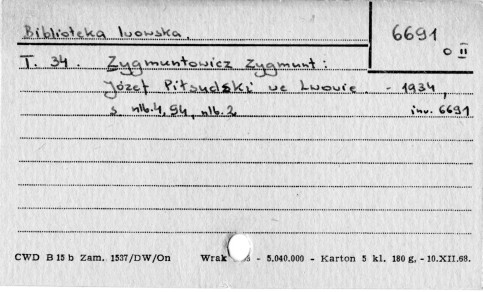 Biblioteka lwowska.
6691
o II
T. 34. Zygmuntowicz Zygmunt:
Józef Piłsudski we Lwowie. - 1934,
s nlb.4, 94, nlb.2 inw. 6691
CWD B 15 b Zam. 1537/DW/On Wrak - 5.040.000 - Karton 5 kl. 180 g, - 10.XII.68.